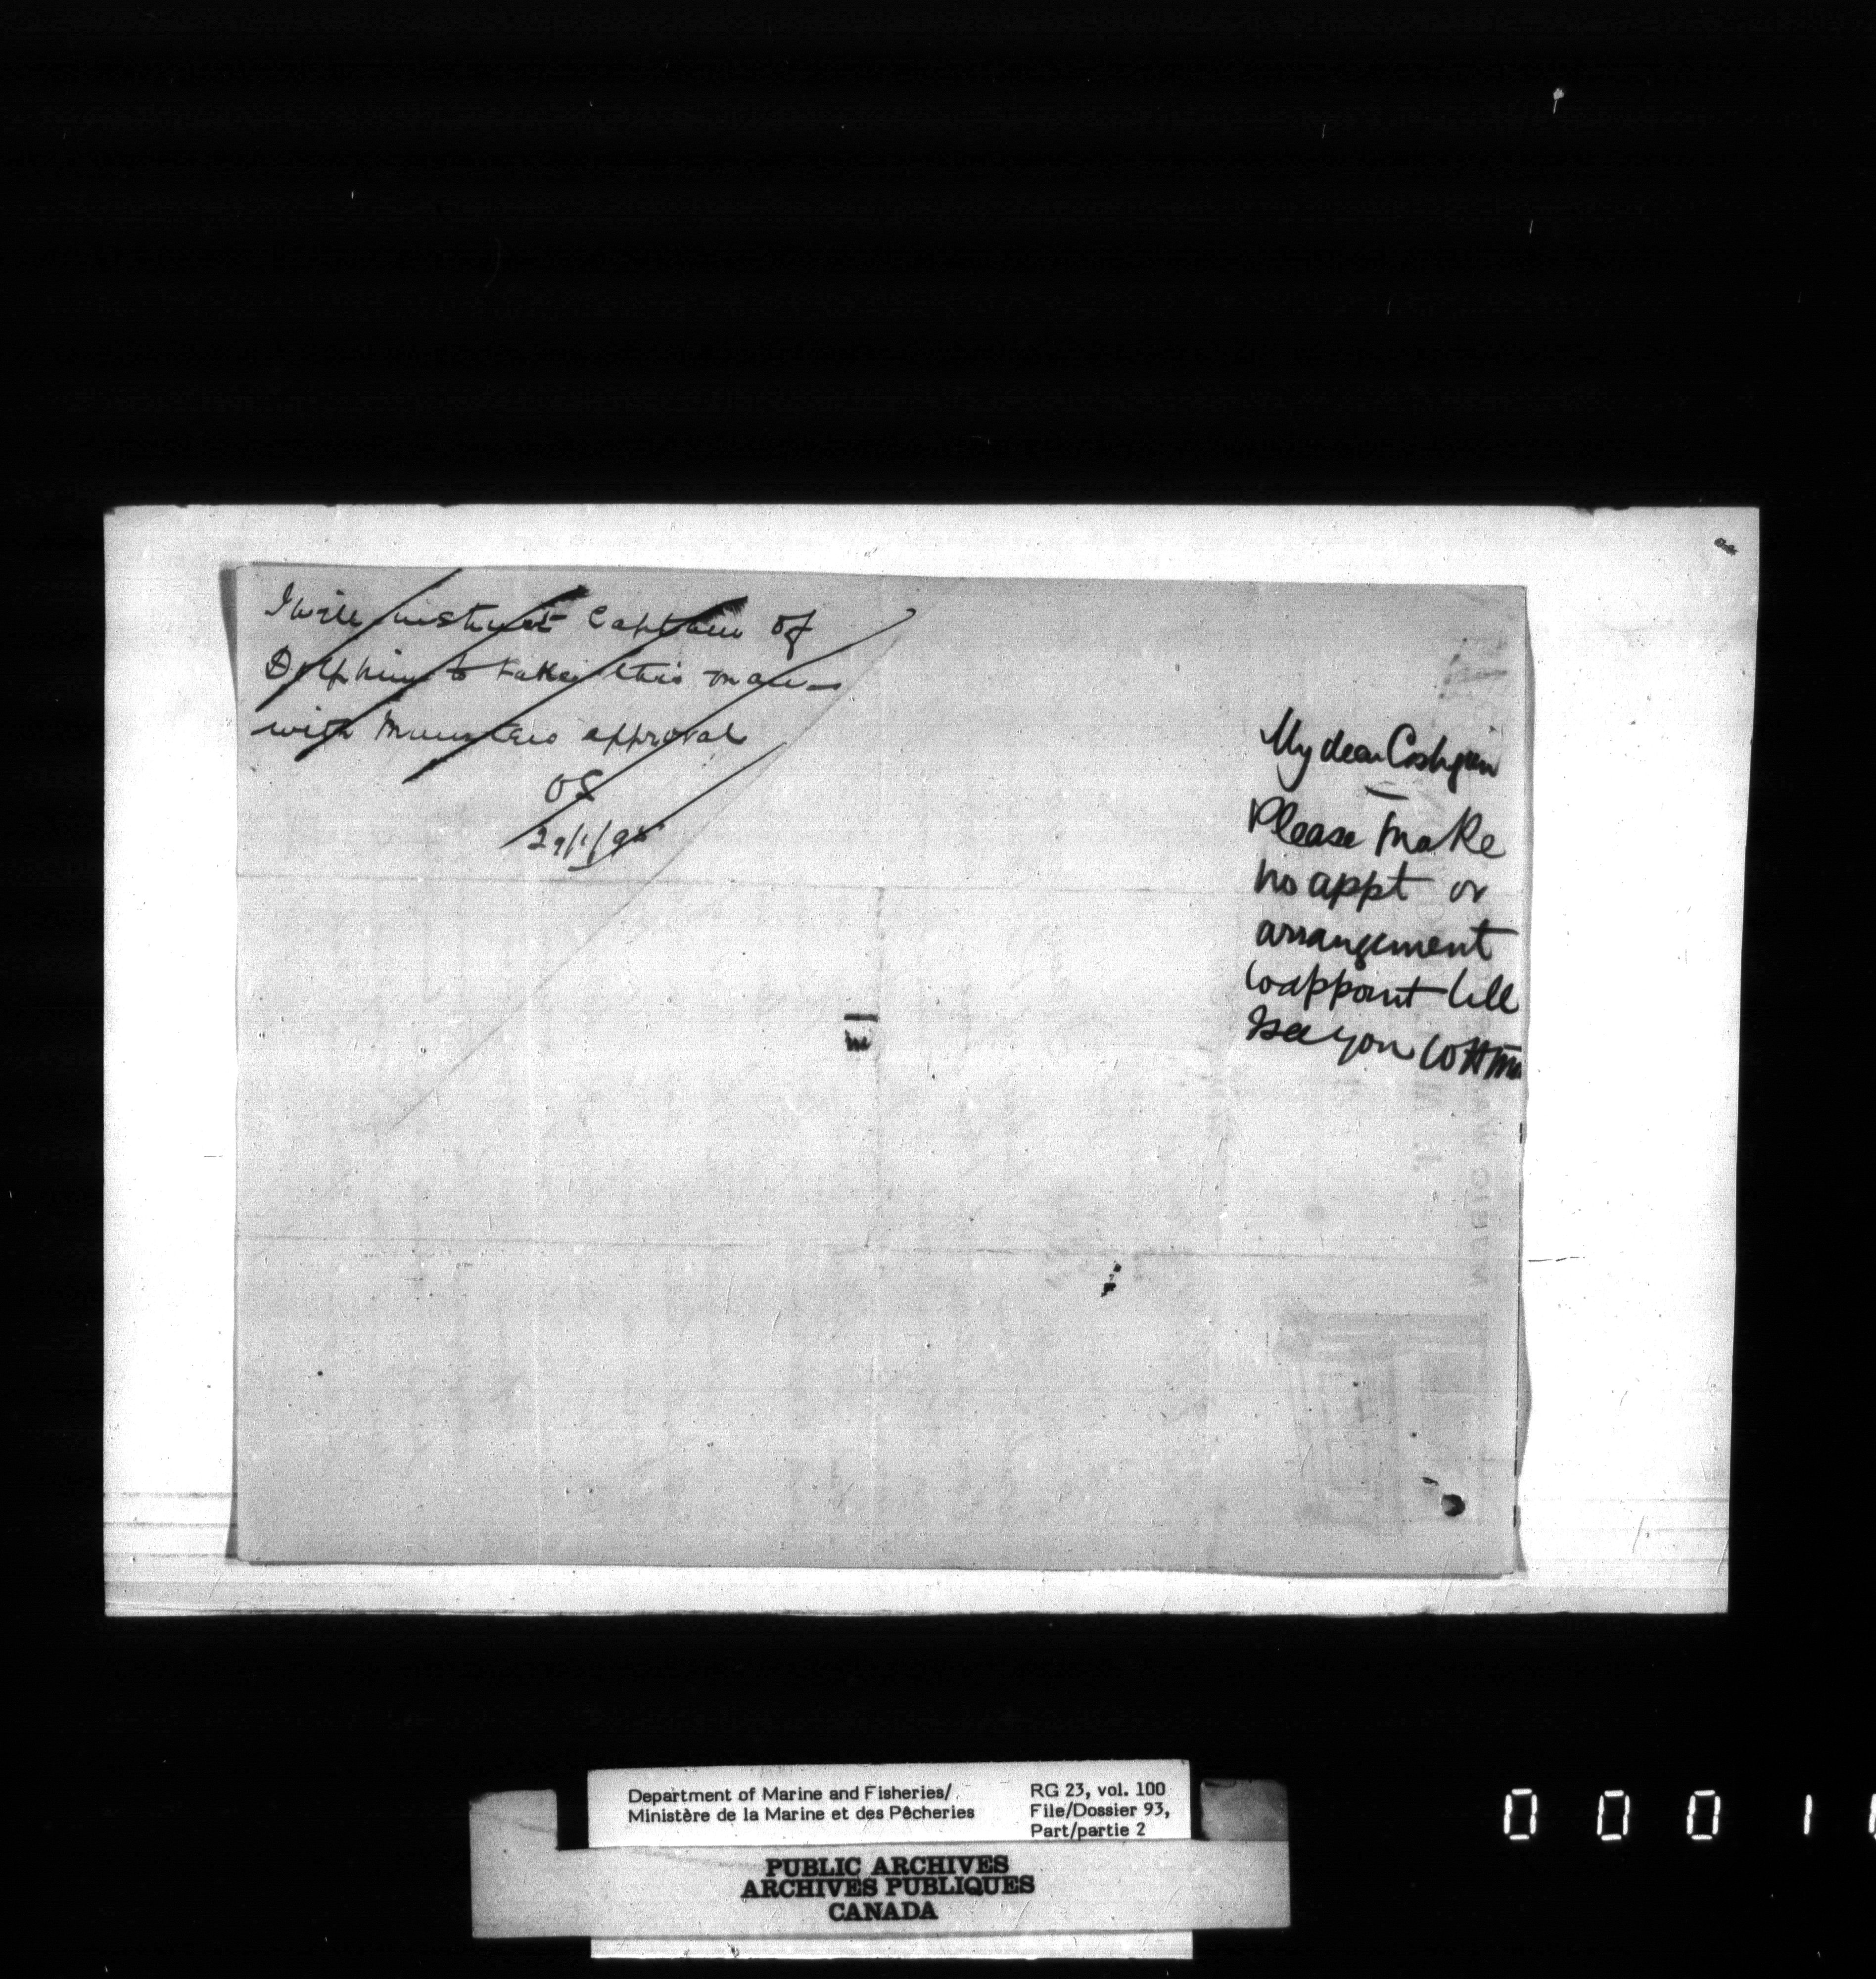 I will instruct Captain of
Dolphin to take this man
with Ministers approval
OS
29/1/95
My dear Costigan
Please make
no appt or
arrangement
to appoint till
I see you
Department of Marine and Fisheries/
Ministère de la Marine et des Pêcheries
RG 23, vol. 100
File/Dossier 93,
Part/partie 2
PUBLIC ARCHIVES
ARCHIVES PUBLIQUES
CANADA
0 0 0 1